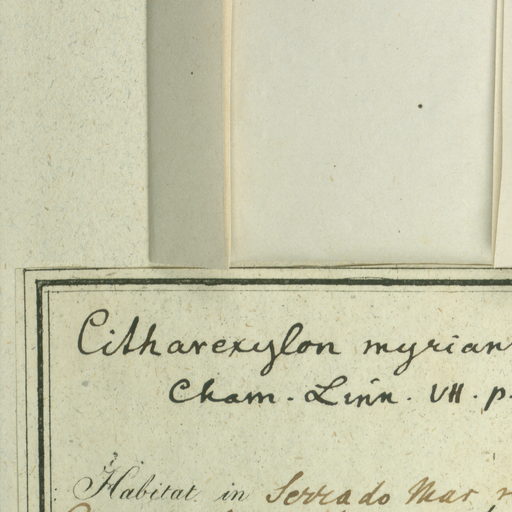 Citharexylon myrian
Cham. Linn. VII. p.
Habitat in Serra do Mar